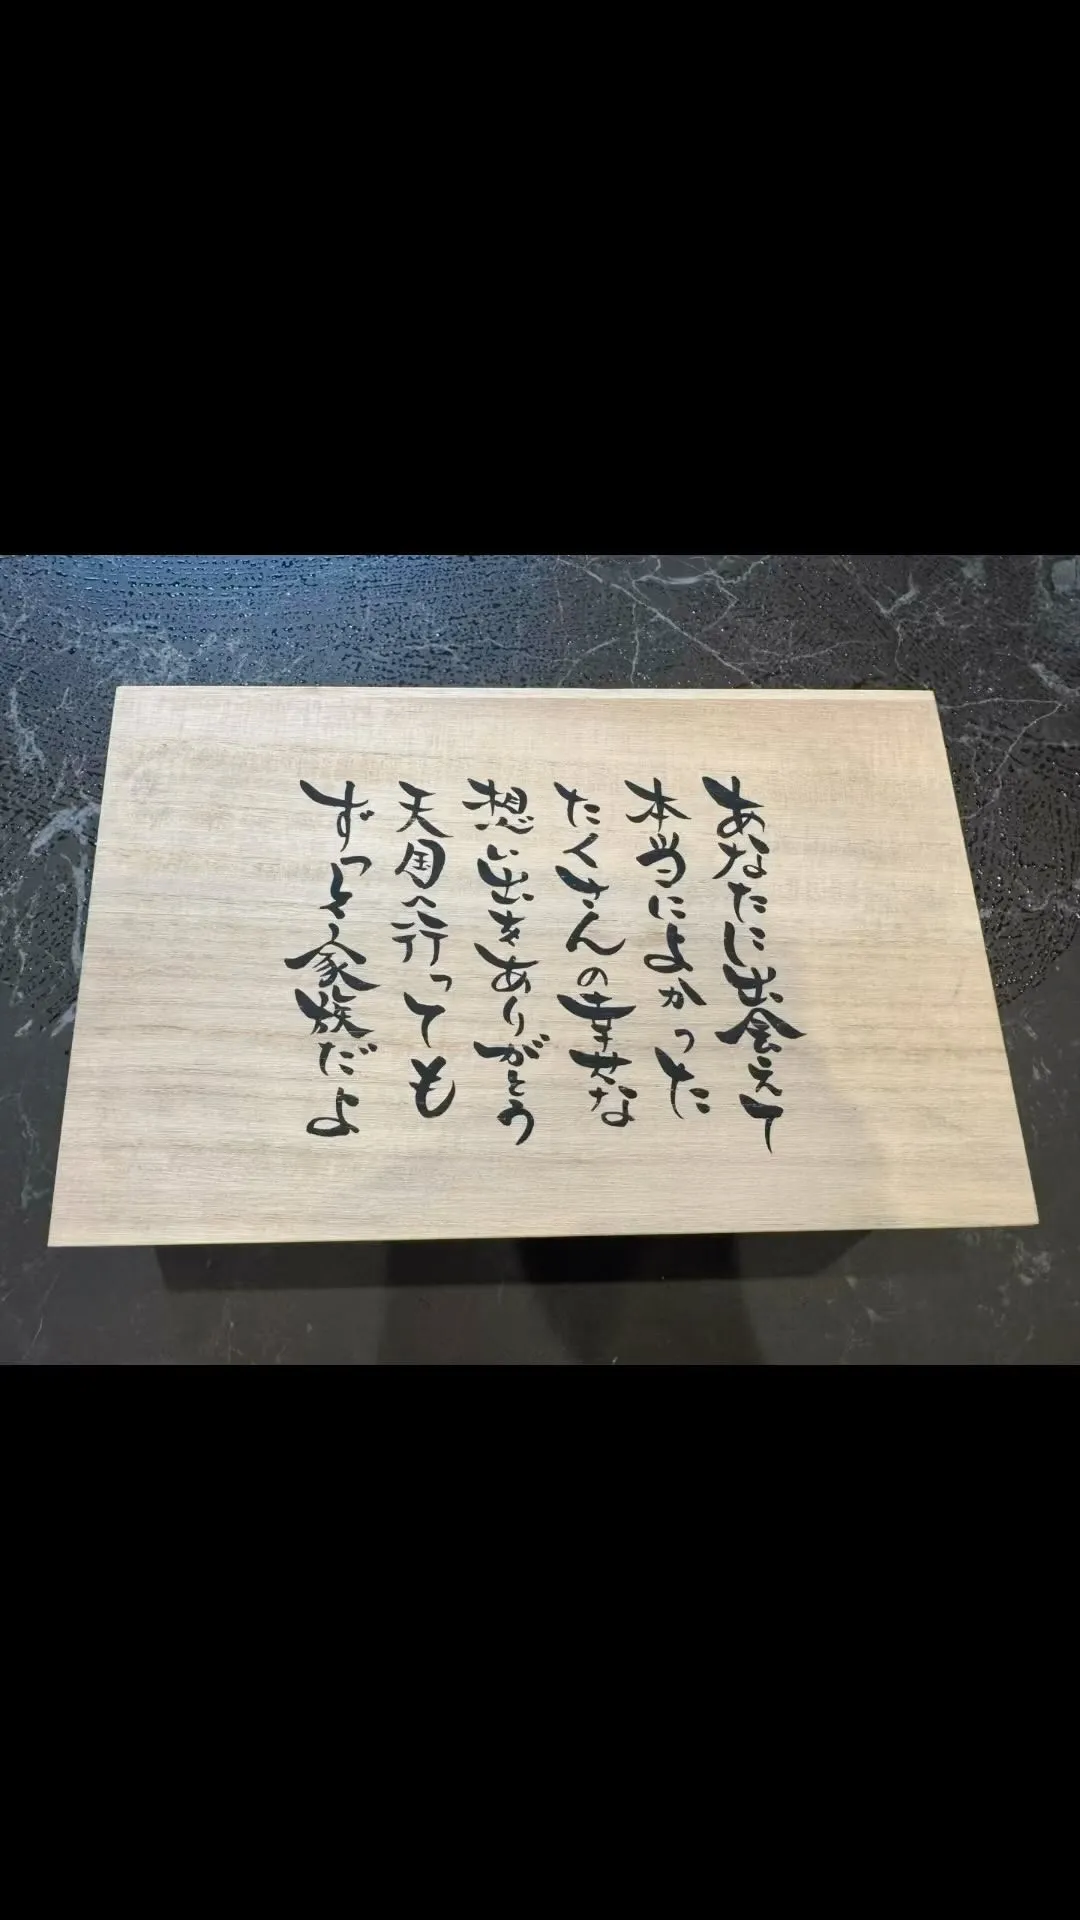 あなたに出会えて
本当によかった
たくさんの幸せな
想い出をありがとう
天国へ行っても
ずっと家族だよ